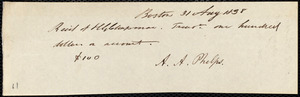 Boston 31 Aug 1838
Rec'd of H G Chapman. Treasr. one hundred
dollars on account.
$100
A. A. Phelps.